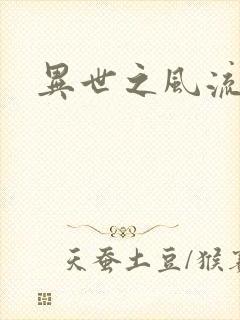 異世之風流
天蚕土豆/猴